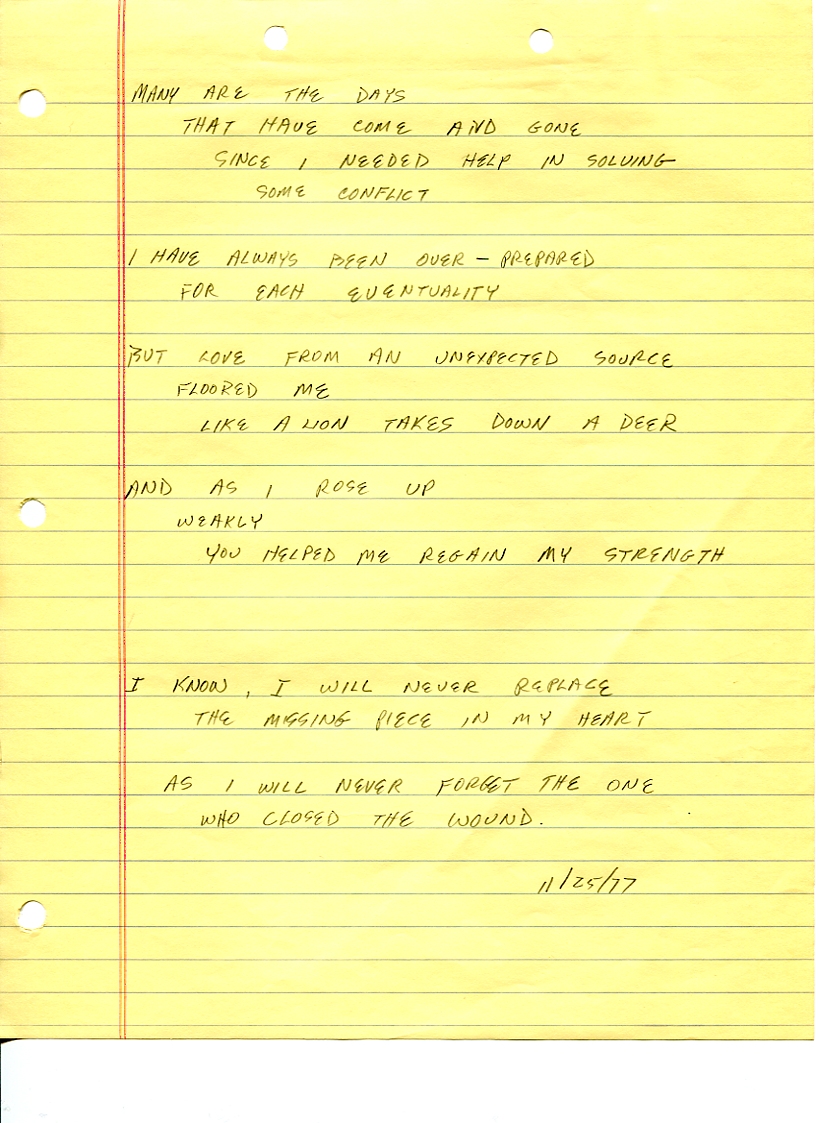 MANY ARE THE DAYS
THAT HAVE COME AND GONE
SINCE I NEEDED HELP IN SOLVING
SOME CONFLICT
I HAVE ALWAYS BEEN OVER-PREPARED
FOR EACH EVENTUALITY
BUT LOVE FROM AN UNEXPECTED SOURCE
FLOORED ME
LIKE A LION TAKES DOWN A DEER
AND AS I ROSE UP
WEAKLY
YOU HELPED ME REGAIN MY STRENGTH
I KNOW, I WILL NEVER REPLACE
THE MISSING PIECE IN MY HEART
AS I WILL NEVER FORGET THE ONE
WHO CLOSED THE WOUND.
11/25/77